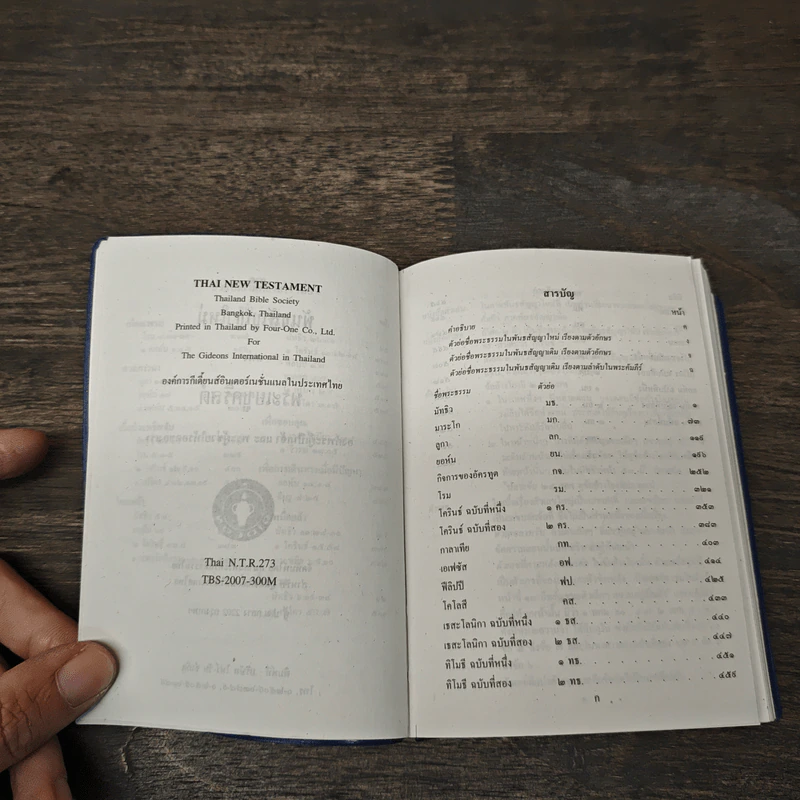 THAI NEW TESTAMENT
Thailand Bible Society
Bangkok, Thailand
Printed in Thailand by Four-One Co., Ltd.
For
The Gideons International in Thailand
องค์การกีเดี้ยนส์อินเตอร์เนชั่นแนลในประเทศไทย
Thai N.T.R.273
TBS-2007-300M
สารบัญ
หน้า
คำอธิบาย ค
ตัวย่อชื่อพระธรรมในพันธสัญญาใหม่ เรียงตามตัวอักษร
ตัวย่อชื่อพระธรรมในพันธสัญญาเดิม เรียงตามตัวอักษร
ตัวย่อชื่อพระธรรมในพันธสัญญาเดิม เรียงตามลำดับในพระคัมภีร์
ชื่อพระธรรม ตัวย่อ
มัทธิว มธ. ๑
มาระโก มก. ๗๑
ลูกา ลก. ๑๑๙
ยอห์น ยน. ๑๙๖
กิจการของอัครทูต กจ. ๒๕๒
โรม รม. ๓๒๑
โครินธ์ ฉบับที่หนึ่ง ๑ คร. ๓๕๓
โครินธ์ ฉบับที่สอง ๒ คร. ๓๘๓
กาลาเทีย กท. ๔๐๓
เอเฟซัส อฟ. ๔๑๔
ฟีลิปปี ฟป. ๔๒๕
โคโลสี คส. ๔๓๓
เธสะโลนิกา ฉบับที่หนึ่ง ๑ ธส. ๔๔๐
เธสะโลนิกา ฉบับที่สอง ๒ ธส. ๔๔๗
ทิโมธี ฉบับที่หนึ่ง ๑ ทธ. ๔๕๑
ทิโมธี ฉบับที่สอง ๒ ทธ. ๔๕๙
ก